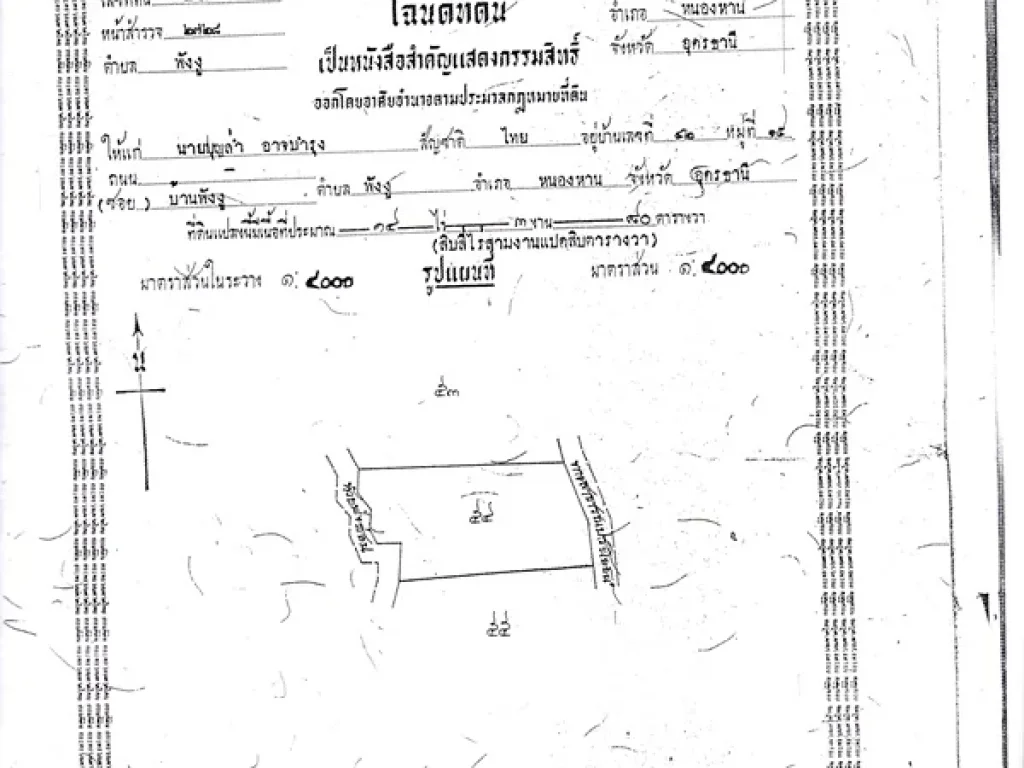 โฉนดที่ดิน
อำเภอ หนองหาน
หน้าสำรวจ ๒๗๒๘
จังหวัด อุดรธานี
ตำบล พังงู
เป็นหนังสือสำคัญแสดงกรรมสิทธิ์
ออกโดยอาศัยอำนาจตามประมวลกฎหมายที่ดิน
ให้แก่ นายบุญล่ำ อาจบำรุง สัญชาติ ไทย อยู่บ้านเลขที่ หมู่ที่
ถนน –
(ซอย) บ้านพังงู ตำบล พังงู อำเภอ หนองหาน จังหวัด อุดรธานี
ที่ดินแปลงนี้มีเนื้อที่ประมาณ ๑๔ ไร่ ๓ งาน ๘๐ ตารางวา
(สิบสี่ไร่สามงานแปดสิบตารางวา)
มาตราส่วนในระวาง ๑: ๔๐๐๐ รูปแผนที่ มาตราส่วน ๑: ๔๐๐๐
น
๕๓
ทางสาธารณประโยชน์
๕๕